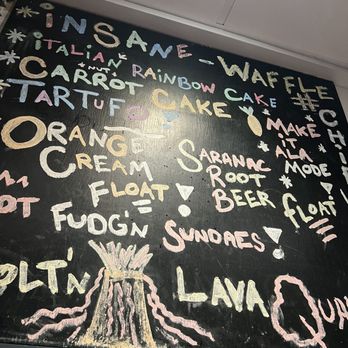 iNSANE-WAFFLE
iTALiAN RAiNBOW CAKE
"NUT"
CARROT CAKE
TARTUFO
MAKE
iT
ALA
MODE
ORANGE
CREAM
FLOAT!
SARANAC
ROOT
BEER FLOAT!
FUDG'N SUNDAES!
LAVA